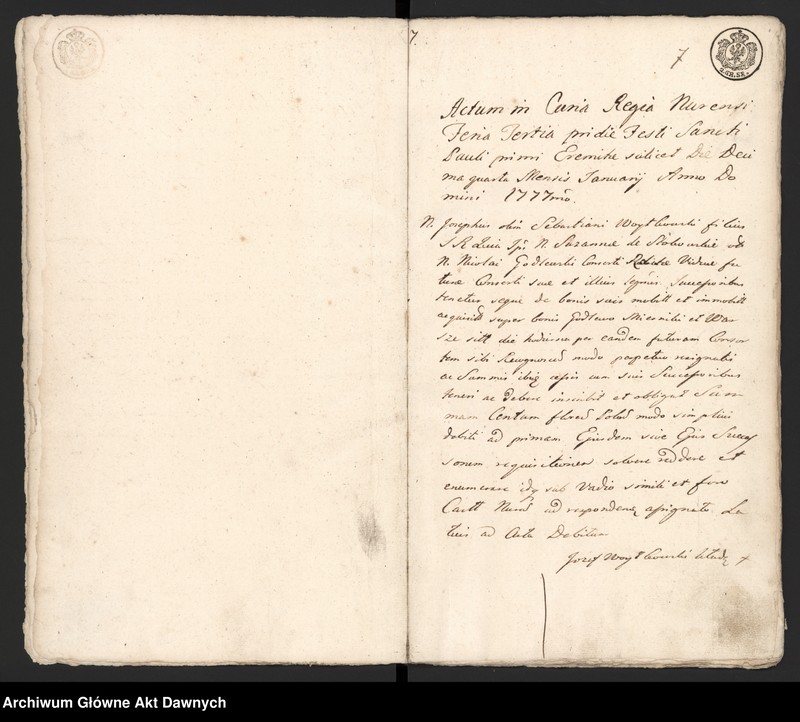 7.
7
2.GR.SR.
Actum in Curia Regia Nurensi
Feria Tertia pridie Festi Sancti
Pauli primi Eremitæ scilicet Die Deci
ma quarta Mensis Januarij Anno Do
mini 1777mo.
N. Josephus olim Sebastiani Woytkowski filius
N. Nicolai Godlewski Consorti Relictæ Viduæ fu
turæ Consorti suæ et illius Successoribus
tenetur seque de bonis suis mobill et immobill
super bonis Godlewo Mierniki et War
sze sitt die hodierna per eandem futuram Consor
tem sibi modo perpetuo resignatis
ac Summis ibiq cessis cum suis Successoribus
teneri ac debere inscribit et obligat Sum
mam Centum modo simplicis
debiti ad primam Ejusdem sive Ejus Succes
sorum requisitionem solvere reddere et
enumerare idq sub Vadio simili et foro
Castr Nuren ad respondend assignato La
tius ad Acta
Jozef Woytkowski +
Archiwum Główne Akt Dawnych